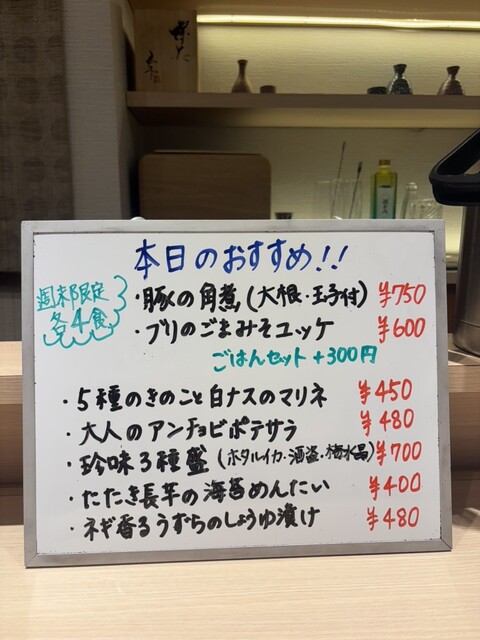 本日のおすすめ!!
週末限定
各4食
・豚の角煮(大根・玉子付) ¥750
・ブリのごまみそユッケ ¥600
ごはんセット+300円
・5種のきのこと白ナスのマリネ ¥450
・大人のアンチョビポテサラ ¥480
・珍味3種盛(ホタルイカ・酒盗・梅水晶) ¥700
・たたき長芋の海苔めんたい ¥400
・ネギ香るうずらのしょうゆ漬け ¥480